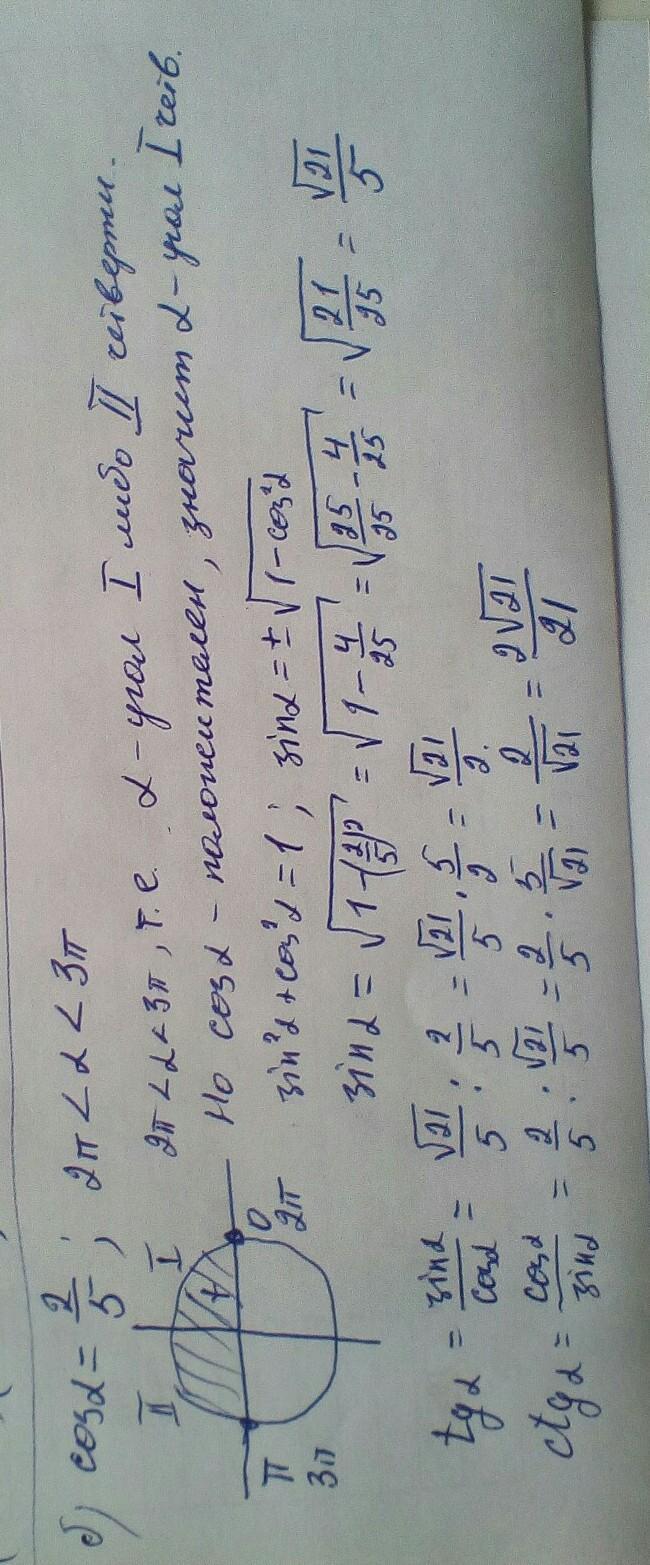 б) cosα = 2/5 ; 2π < α < 3π
2π < α < 3π, т.е. α - угол I либо II четверти.
Но cosα - положителен, значит α - угол I четв.
II I
π 3π
0 2π
sin²α + cos²α = 1 ; sinα = ±√(1 - cos²α)
sinα = √(1 - (2/5)²) = √(1 - 4/25) = √(25/25 - 4/25) = √(21/25) = √21/5
tgα = sinα/cosα = √21/5 : 2/5 = √21/5 · 5/2 = √21/2.
ctgα = cosα/sinα = 2/5 : √21/5 = 2/5 · 5/√21 = 2/√21 = 2√21/21